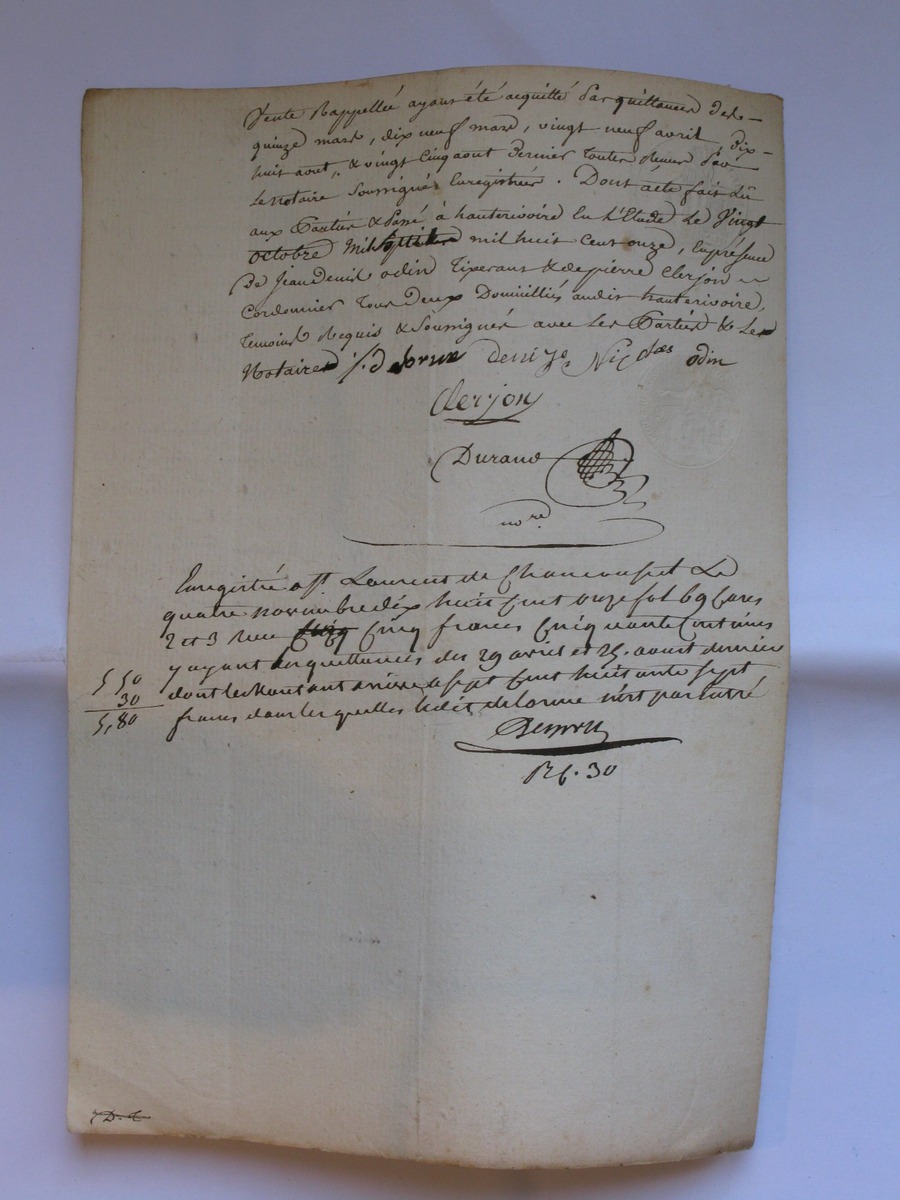 Vente Rappellée ayant été acquitté Par quittances des
quinze mars, dix neuf mars, vingt neuf avril, dix
huit aout, & vingt Cinq aout Dernier toutes Reçues Par
Le Notaire Soussigné Enregistrées. Dont acte fait Lû
aux Parties & Passé à hauterivoire En L'Etude Le Vingt
octobre mil huit Cent onze, En présence
De Jean denis odin Tixerant & de pierre Clerjon
Cordonnier Tous deux Domiciliés audit hauterivoire,
Temoins Requis & Soussignés avec Les Parties & Les
Notaires odin
Clerjon
Durand
nore
Enregistré a St Laurent de Chamousset Le
quatre novembre dix huit Cent onze fol 69 Cases
2 et 3 Reçu Cinq francs Cinquante Centimes
y ayant quittances des 29 avril et 25 aoust dernier
dont le Montant a sept Cent huitante sept
francs dans les quelles de Lorme n'est pas entré
5 50
30
5,80
30